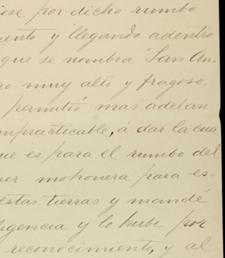 iose por dicho rumbo
iento y llegando adentro
que se nombra "San An-
ro muy alto y fragoso
permitió mas adelan
impracticable, á dar la cua
que es para el rumbo del
er mohonera para es-
estas tierras y mandé
ligencia y lo hube por
reconocimiento, y al